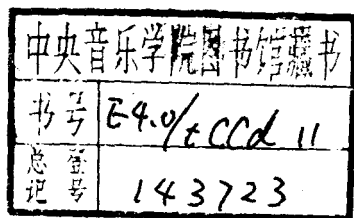 中央音乐学院图书馆藏书
书号 E4.0/tCCd 11
总登记号 143723